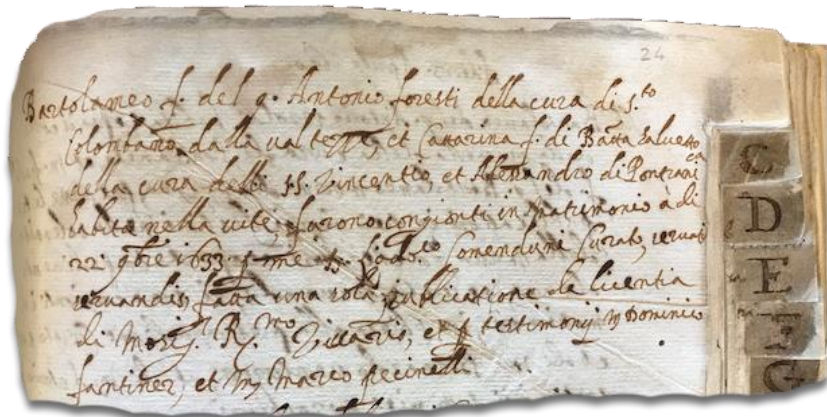 24
Bartolameo f. del q. Antonio foresti della cura di S.to
Colombano, dalla val tezze, et Cattarina f. di Batta Salvetto
della cura delli SS. Vincentio, et Alessandro di Pontranica
habita nella vite, furono congionti in Matrimonio à di
22 9bre 1633 p me Comenduni Curato, servati
servandis, fatta una sola publicatione de licentia
di Mons.r R.mo Vicario, et p testimonij m Dominico
fantiner, et m Marco pecinelli
C
D
E
F
G